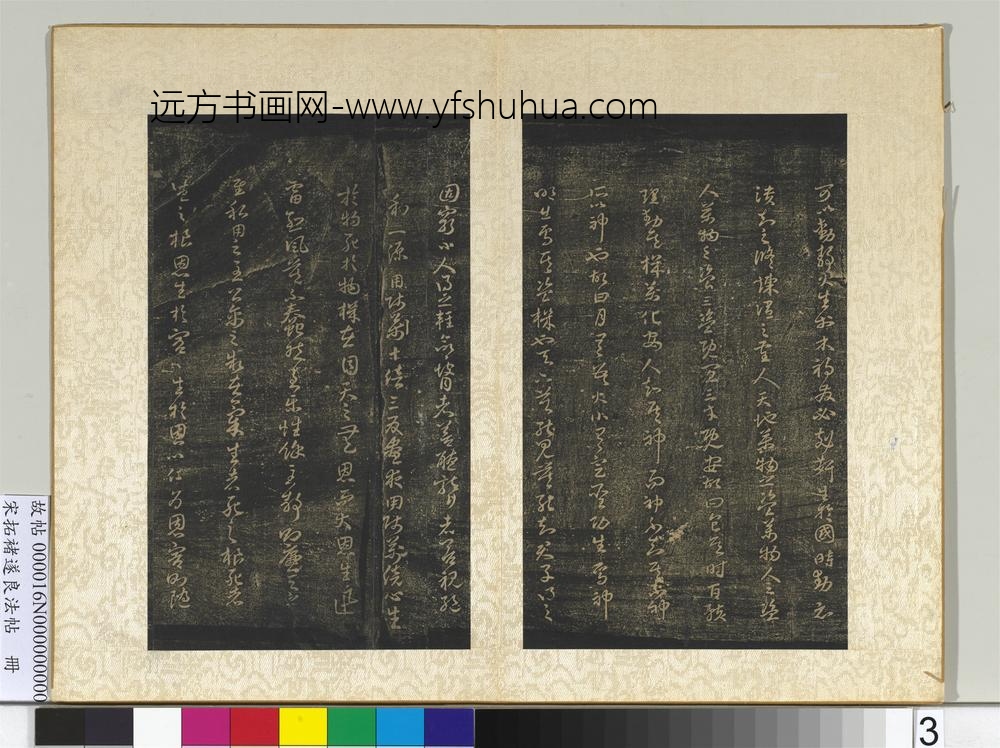 远方书画网-www.yfshuhua.com
可以動靜火生於木禍發必剋奸生於國時動必
潰知之脩鍊謂之聖人天地萬物之盜萬物人之盜
人萬物之盜三盜既宜三才既安故曰食其時百骸
理動其機萬化安人知其神而神不知不神
所以神也故日月有數大小有定聖功生焉神
明出焉其盜機也天下莫能見莫能知君子得之
固窮小人得之輕命瞽者善聽聾者善視絕
利一源用師萬十倍三反晝夜用師萬倍心生
於物死於物機在目天之無恩而大恩生迅
雷烈風莫不蠢然至樂性餘至靜則廉天之
至私用之至公禽之制在氣生者死之根死者
生之根恩生於害害生於恩
故帖 000016N000000000
宋拓褚遂良法帖 冊
3